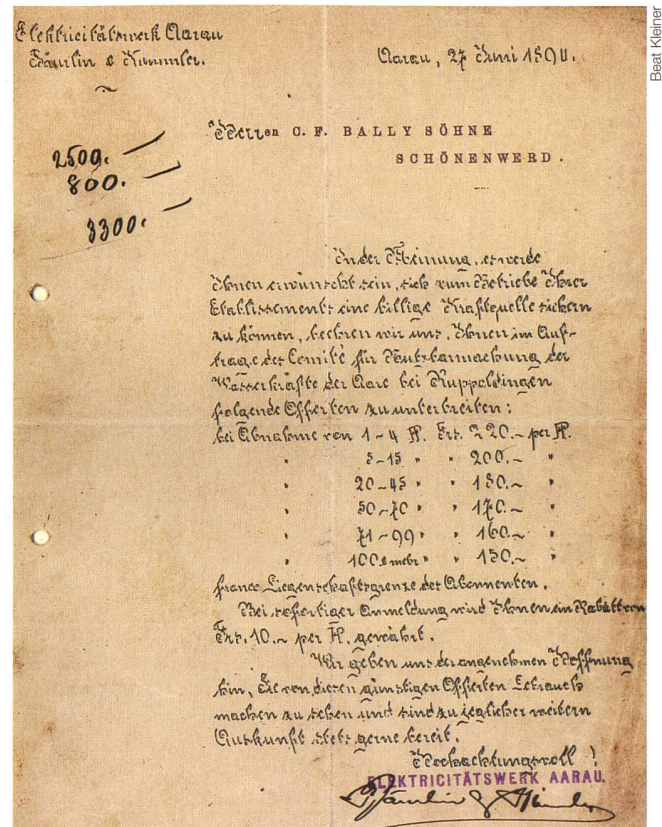 Elektricitätswerk Aarau
Stämlin & Kummler.
Aarau, 27 Juni 1890.
2500.
800.
3300.
Herren C. F. BALLY SÖHNE
SCHÖNENWERD.
In der Meinung, es werde
Ihnen erwünscht sein, sich zum Betriebe Ihrer
Etablissements eine billige Kraftquelle sichern
zu können, beehren wir uns, Ihnen im Auf-
trage des Comité für Nutzbarmachung der
Wasserkräfte der Aare bei Ruppoldingen
folgende Offerten zu unterbreiten:
bei Abnahme von 1-4 HP. Frs. 220.- per HP.
" 5-15 " " 200.- "
" 20-45 " " 180.- "
" 50-70 " " 170.- "
" 71-99 " " 160.- "
" 100 & mehr " " 150.- "
franco Liegenschaftsgrenze des Abonnenten.
Bei sofortiger Anmeldung wird Ihnen ein Rabatt von
Frs. 10.- per HP. gewährt.
Wir geben uns der angenehmen Hoffnung
hin, Sie von diesen günstigen Offerten Gebrauch
machen zu sehen und sind zu jeglicher weitern
Auskunft stets gerne bereit.
Hochachtungsvoll!
ELEKTRICITÄTSWERK AARAU.
Beat Kleiner